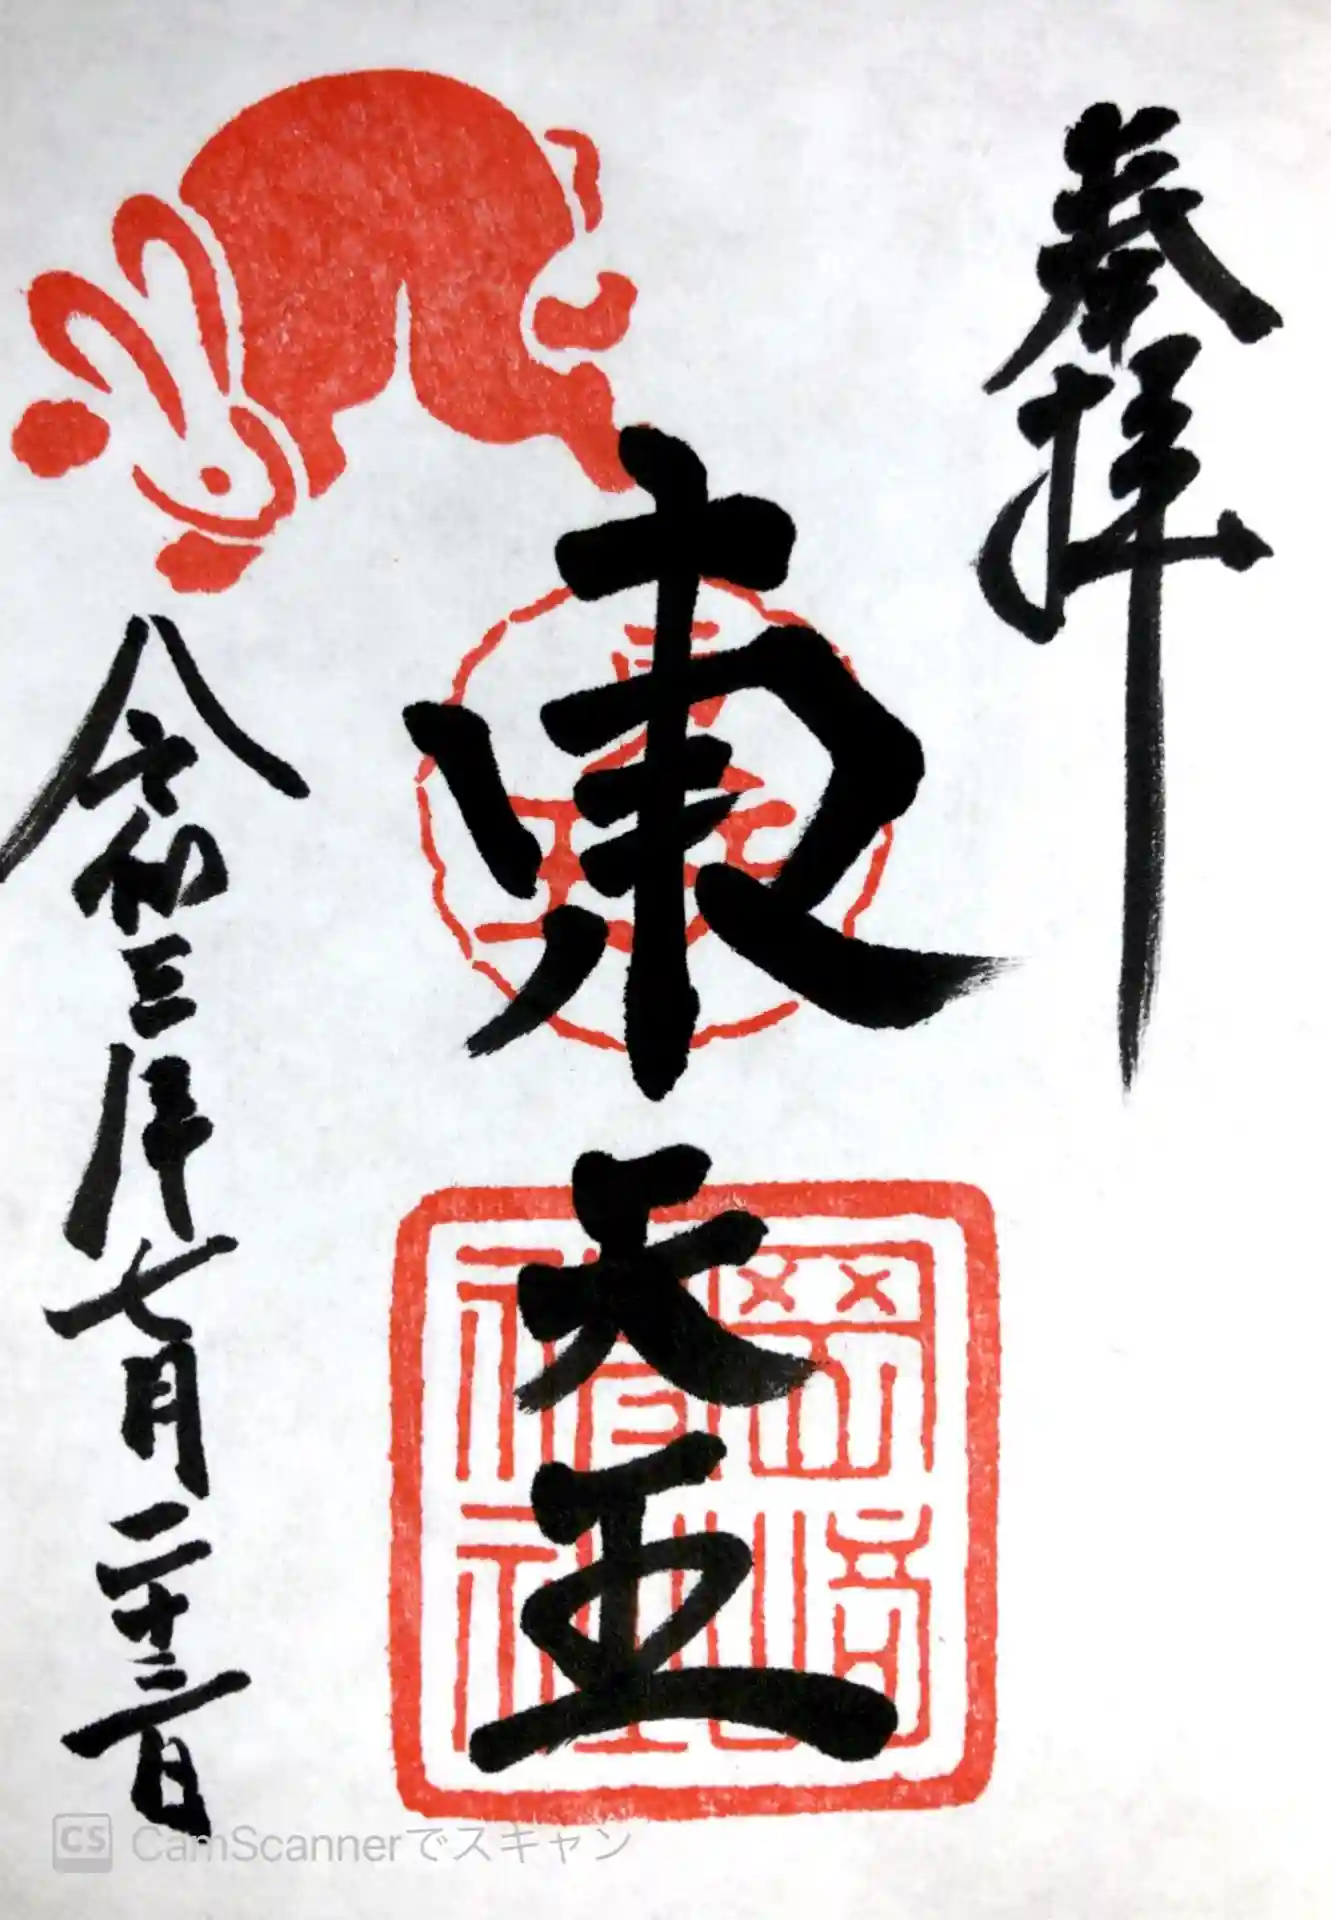 奉拝
東天王
岡﨑神社
令和三年七月二十三日
CS CamScannerでスキャン